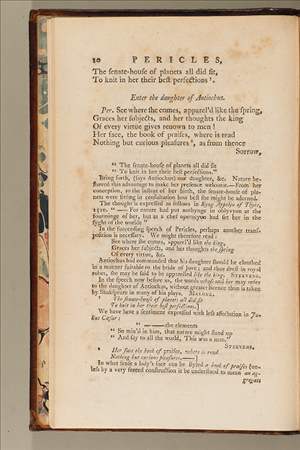 10 PERICLES,
The ſenate-houſe of planets all did ſit,
To knit in her their beſt perfections ⁷.
Enter the daughter of Antiochus.
Per. See where ſhe comes, apparel'd like the ſpring,
Graces her ſubjects, and her thoughts the king
Of every virtue gives renown to men!
Her face, the book of praiſes, where is read
Nothing but curious pleaſures ⁸, as from thence
Sorrow,
" The ſenate-houſe of planets all did ſit
" To knit in her their beſt perfections."
Bring forth, (ſays Antiochus) our daughter, &c. Nature be-
ſtowed this advantage to make her preſence welcome.—From her
conception, to the inſtant of her birth, the ſenate-houſe of pla-
nets were ſitting in conſultation how beſt ſhe might be adorned.
The thought is expreſſed as follows in King Appolyn of Thyre,
1510. " — For nature had put nothynge in oblyvyon at the
fourmynge of her, but as a chef operacyon had ſet her in the
ſyght of the worlde."
In the ſucceeding ſpeech of Pericles, perhaps another tranſ-
poſition is neceſſary. We might therefore read:
See where ſhe comes, apparel'd like the king,
Graces her ſubjects, and her thoughts the ſpring
Of every virtue, &c.
Antiochus had commanded that his daughter ſhould be cloathed
in a manner ſuitable to the bride of Jove; and thus dreſt in royal
robes, ſhe may be ſaid to be appareled like the king. STEEVENS.
In the ſpeech now before us, the words whoſe and her may refer
to the daughter of Antiochus, without greater licence than is taken
by Shakſpeare in many of his plays. MALONE.
⁷ The ſenate-houſe of planets all did ſit
To knit in her their beſt perfections.]
We have here a ſentiment expreſſed with leſs affectation in Ju-
lius Cæſar:
" ——— the elements
" So mix'd in him, that nature might ſtand up
" And ſay to all the world, This was a man."
STEEVENS.
⁸ Her face the book of praiſes, where is read
Nothing but curious pleaſures,——]
In what ſenſe a lady's face can be ſtyled a book of praiſes (un-
leſs by a very forced conſtruction it be underſtood to mean an ag-
gregate